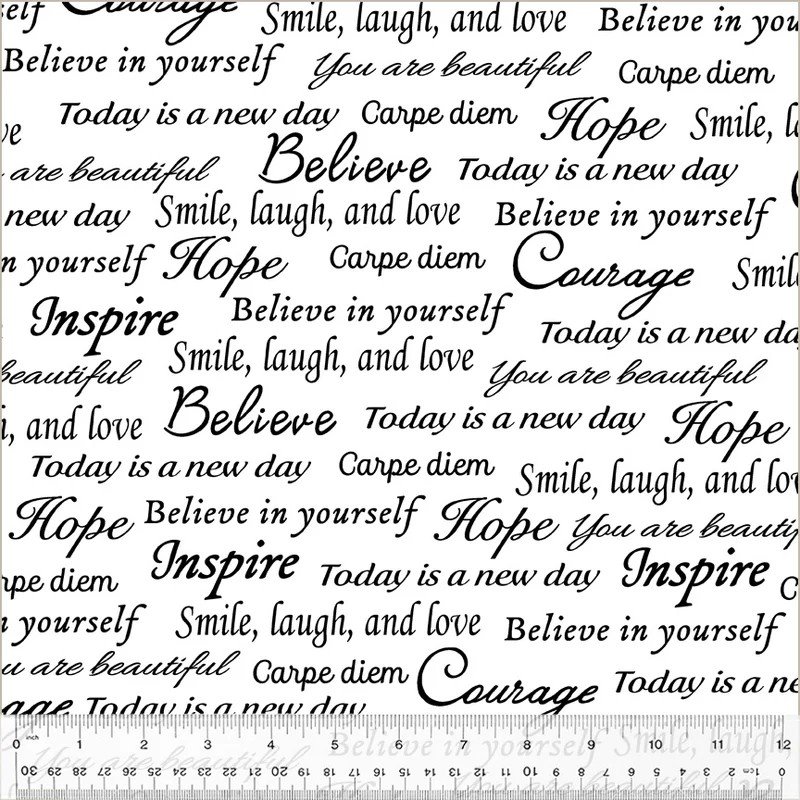 self Courage Smile, laugh, and love Believe in you
Believe in yourself You are beautiful Carpe diem
Today is a new day Carpe diem Hope Smile, l
ve are beautiful Believe Today is a new day
new day Smile, laugh, and love Believe in yourself
n yourself Hope Carpe diem Courage Smil
Inspire Believe in yourself Today is a new da
beautiful Smile, laugh, and love You are beautiful
h, and love Believe Today is a new day Hope
Today is a new day Carpe diem Smile, laugh, and lov
Hope Believe in yourself Hope You are beautif
rpe diem Inspire Today is a new day Inspire C
n yourself Smile, laugh, and love Believe in yourself
u are beautiful Carpe diem Courage Today is a ne
age Today is a new day
0 inch 1 2 3 4 5 6 7 8 9 10 11 12
You are beautiful Believe in yourself Smile, laugh,
30 29 28 27 26 25 24 23 22 21 20 19 18 17 16 15 14 13 12 11 10 9 8 7 6 5 4 3 2 1cm 0